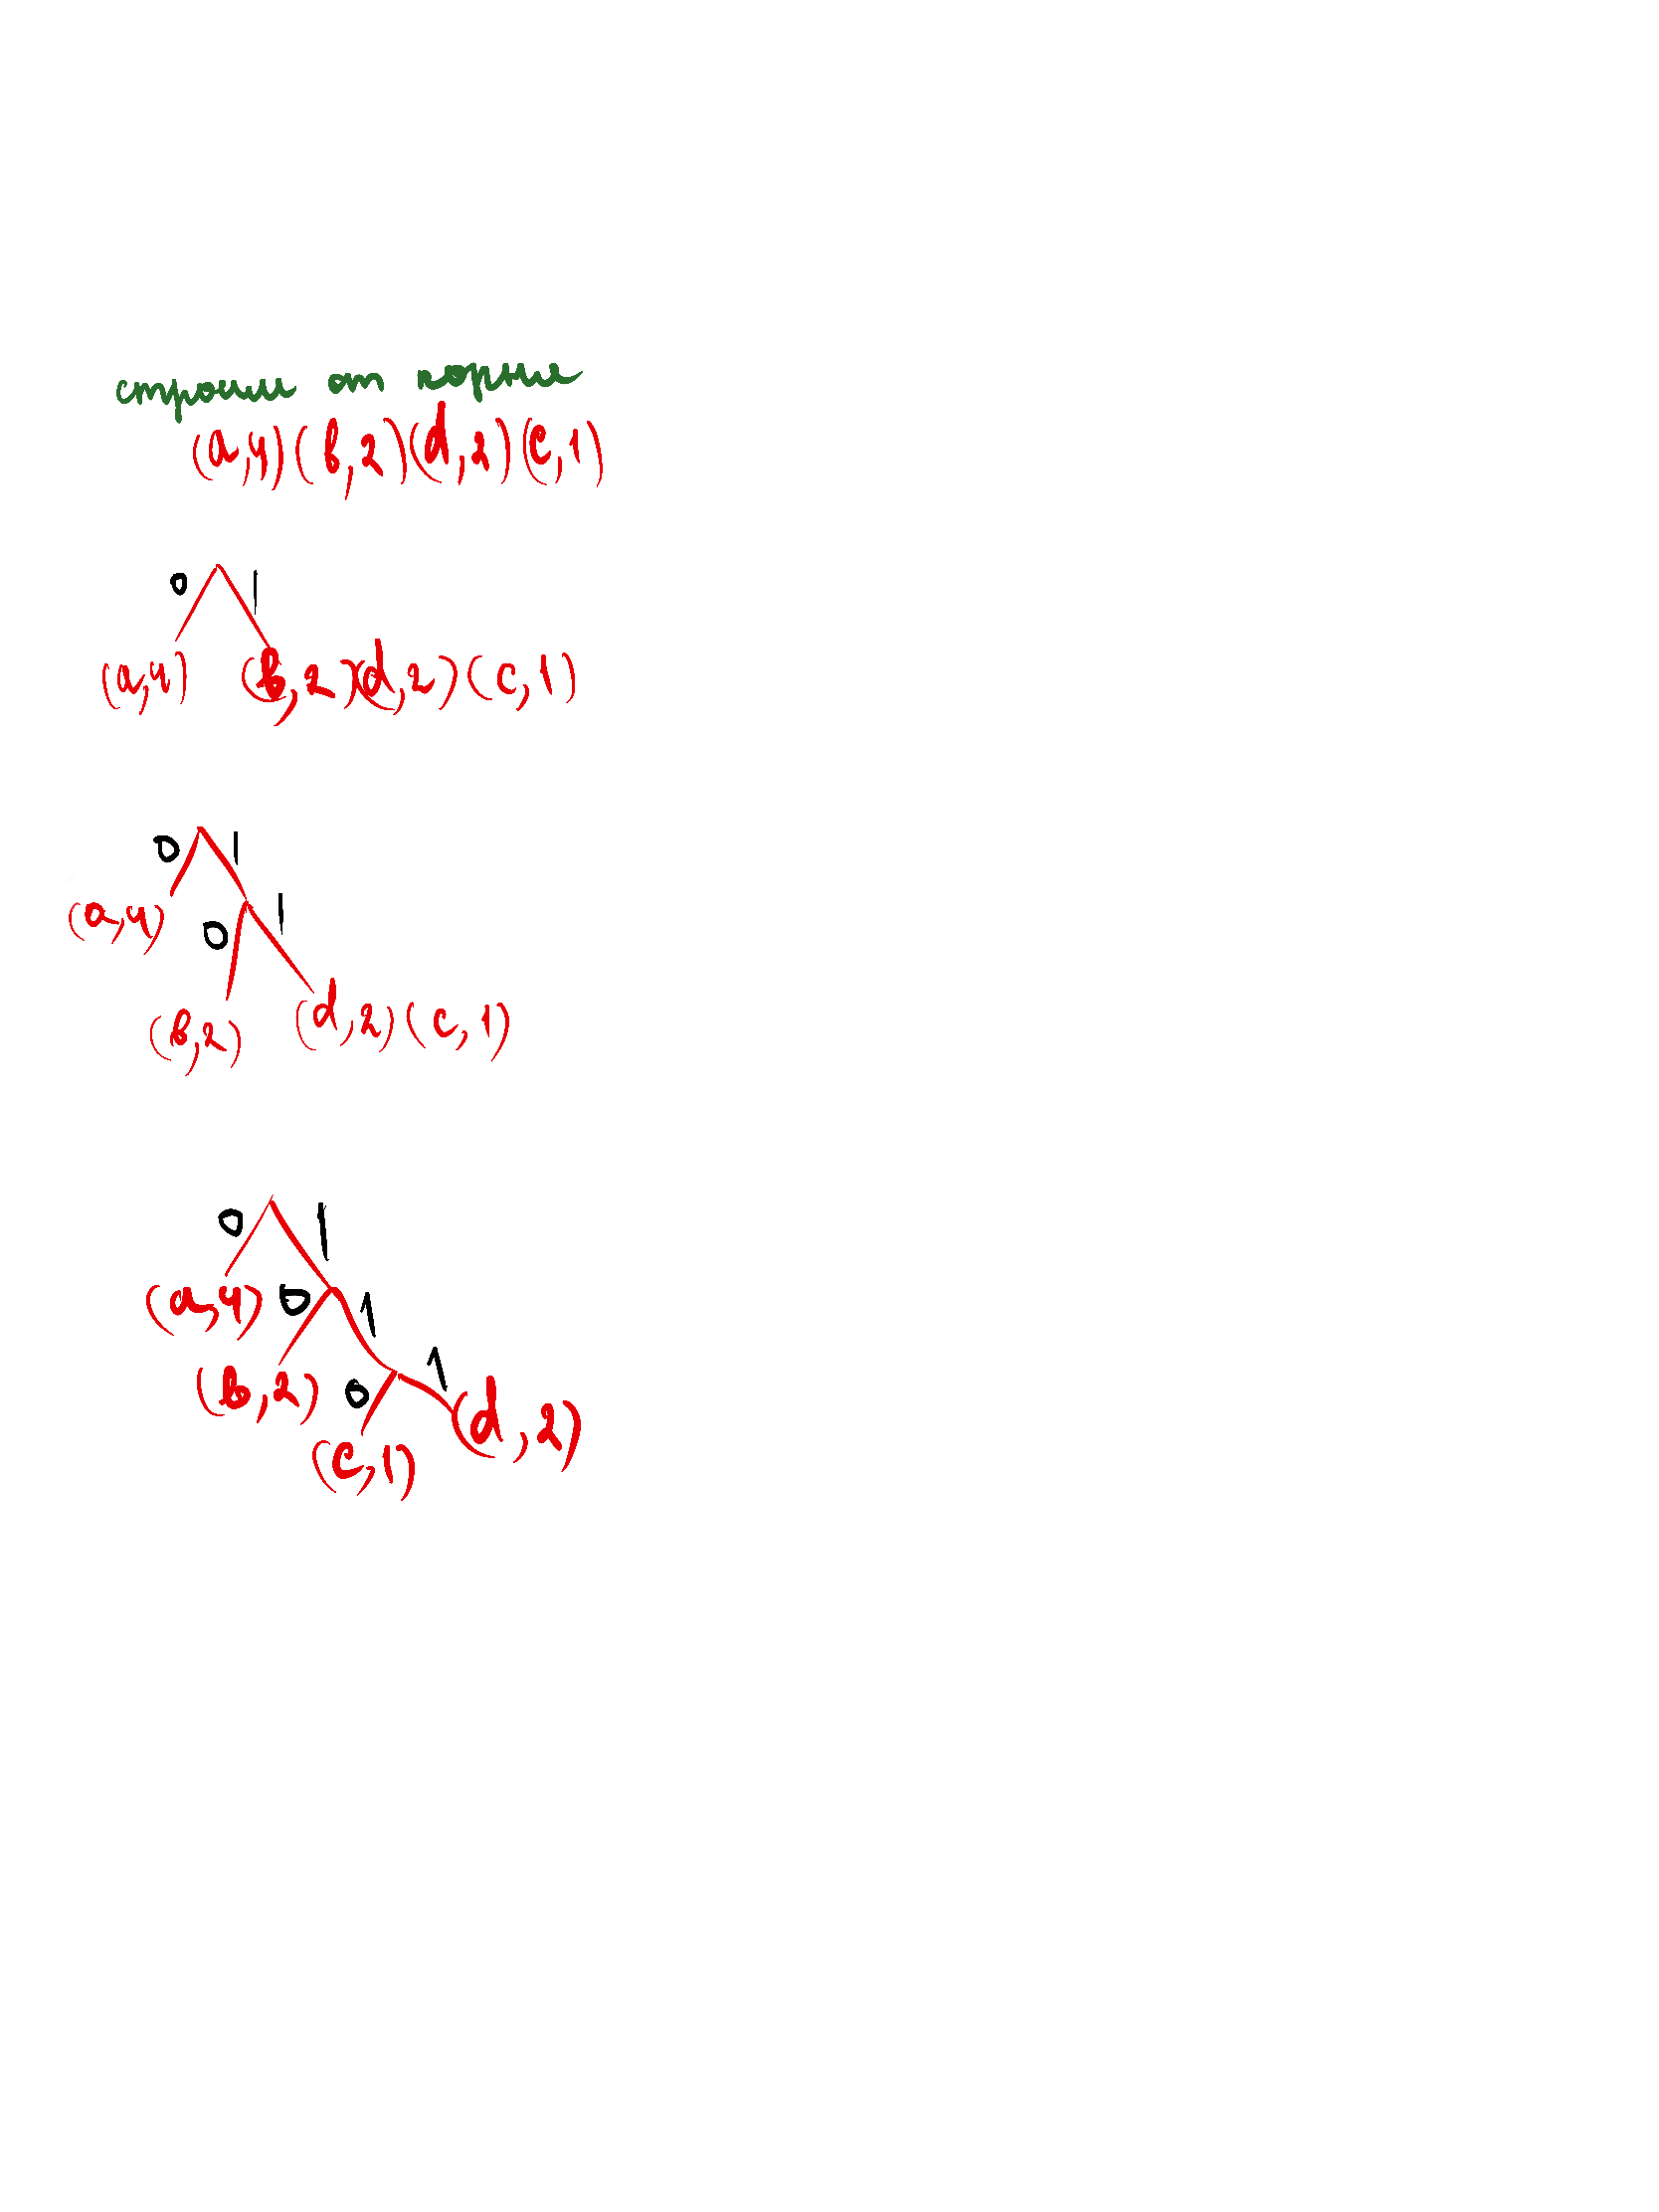 строим от корня
(a,4)(b,2)(d,2)(c,1)
0 1
(a,4) (b,2)(d,2)(c,1)
0 1
(a,4) 0 1
(b,2) (d,2)(c,1)
0 1
(a,4) 0 1
(b,2) 0 1 (d,2)
(c,1)